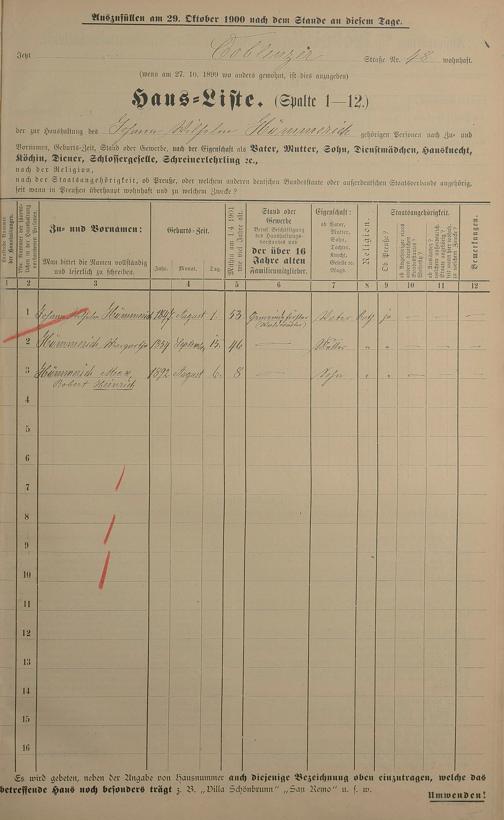 Auszufüllen am 29. Oktober 1900 nach dem Stande an diesem Tage.
Jetzt Coblenzer Straße Nr. 48 wohnhaft.
(wenn am 27. 10. 1899 wo anders gewohnt, ist dies anzugeben)
Haus-Liste. (Spalte 1—12.)
der zur Haushaltung des Johann Wilhelm Hümmerich gehörigen Personen nach Zu- und
Vornamen, Geburts-Zeit, Stand oder Gewerbe, nach der Eigenschaft als Vater, Mutter, Sohn, Dienstmädchen, Hausknecht,
Köchin, Diener, Schlossergeselle, Schreinerlehrling ꝛc.,
nach der Religion,
nach der Staatsangehörigkeit, ob Preuße, oder welchem anderen deutschen Bundesstaate oder außerdeutschen Staatsverbande angehörig,
seit wann in Preußen überhaupt wohnhaft und zu welchem Zwecke?
Zu- und Vornamen:
Man bittet die Namen vollständig
und leserlich zu schreiben.
Geburts-Zeit.
Jahr. Monat. Tag.
Mithin am 1.4 1901
wie viel Jahre alt.
Stand oder
Gewerbe
der über 16
Jahre alten
Familienmitglieder.
Eigenschaft:
ob Vater,
Mutter,
Sohn,
Tochter,
Knecht,
Geselle ꝛc.
Magd.
Religion.
Staatsangehörigkeit.
Ob Preuße?
Bemerkungen.
1 2 3 4 5 6 7 8 9 10 11 12
1 Johann Wilhelm Hümmerich 1847 August 1. 53 Vater ja — —
2 Hümmerich 1854 September 15. 46 — Mutter " " — — —
3 Hümmerich Max 1892 August 6. 8 — Sohn " " — — —
Robert Heinrich
4
5
6
7
8
9
10
11
12
13
14
15
16
Es wird gebeten, neben der Angabe von Hausnummer auch diejenige Bezeichnung oben einzutragen, welche das
betreffende Haus noch besonders trägt z. B. „Villa Schönbrunn" „San Remo" u. s. w.
Umwenden!